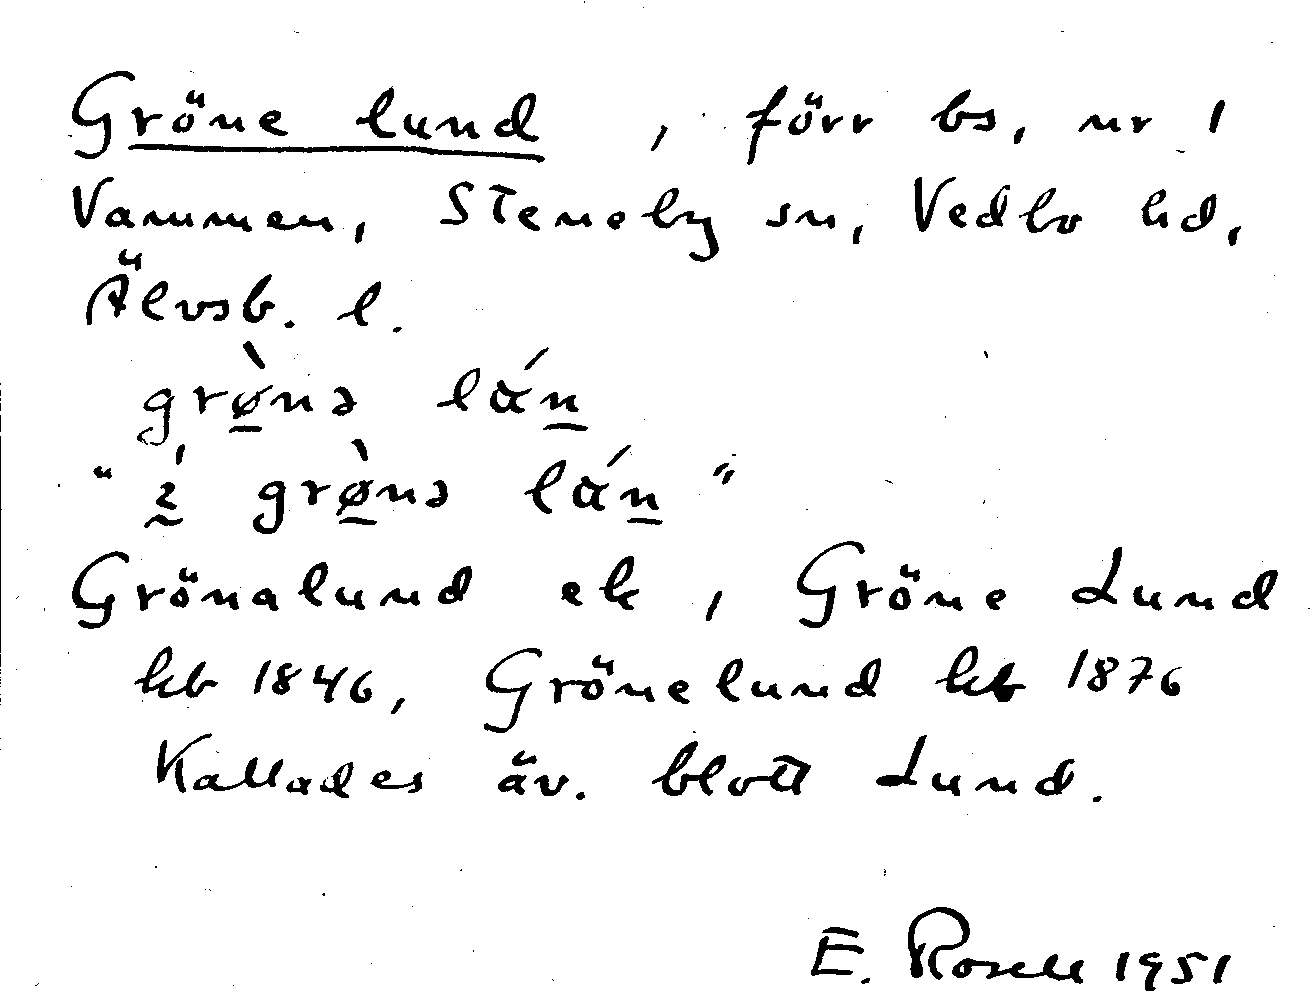 Gröne lund, förr bs, nr 1
Vammen, Steneby sn, Vedbo hd,
Älvsb. l.
grø̀nə lán
"í grø̀nə lán"
Grönalund ek, Gröne Lund
kb 1846, Grönelund kb 1876
Kallades äv. blott Lund.
E. Rosell 1951